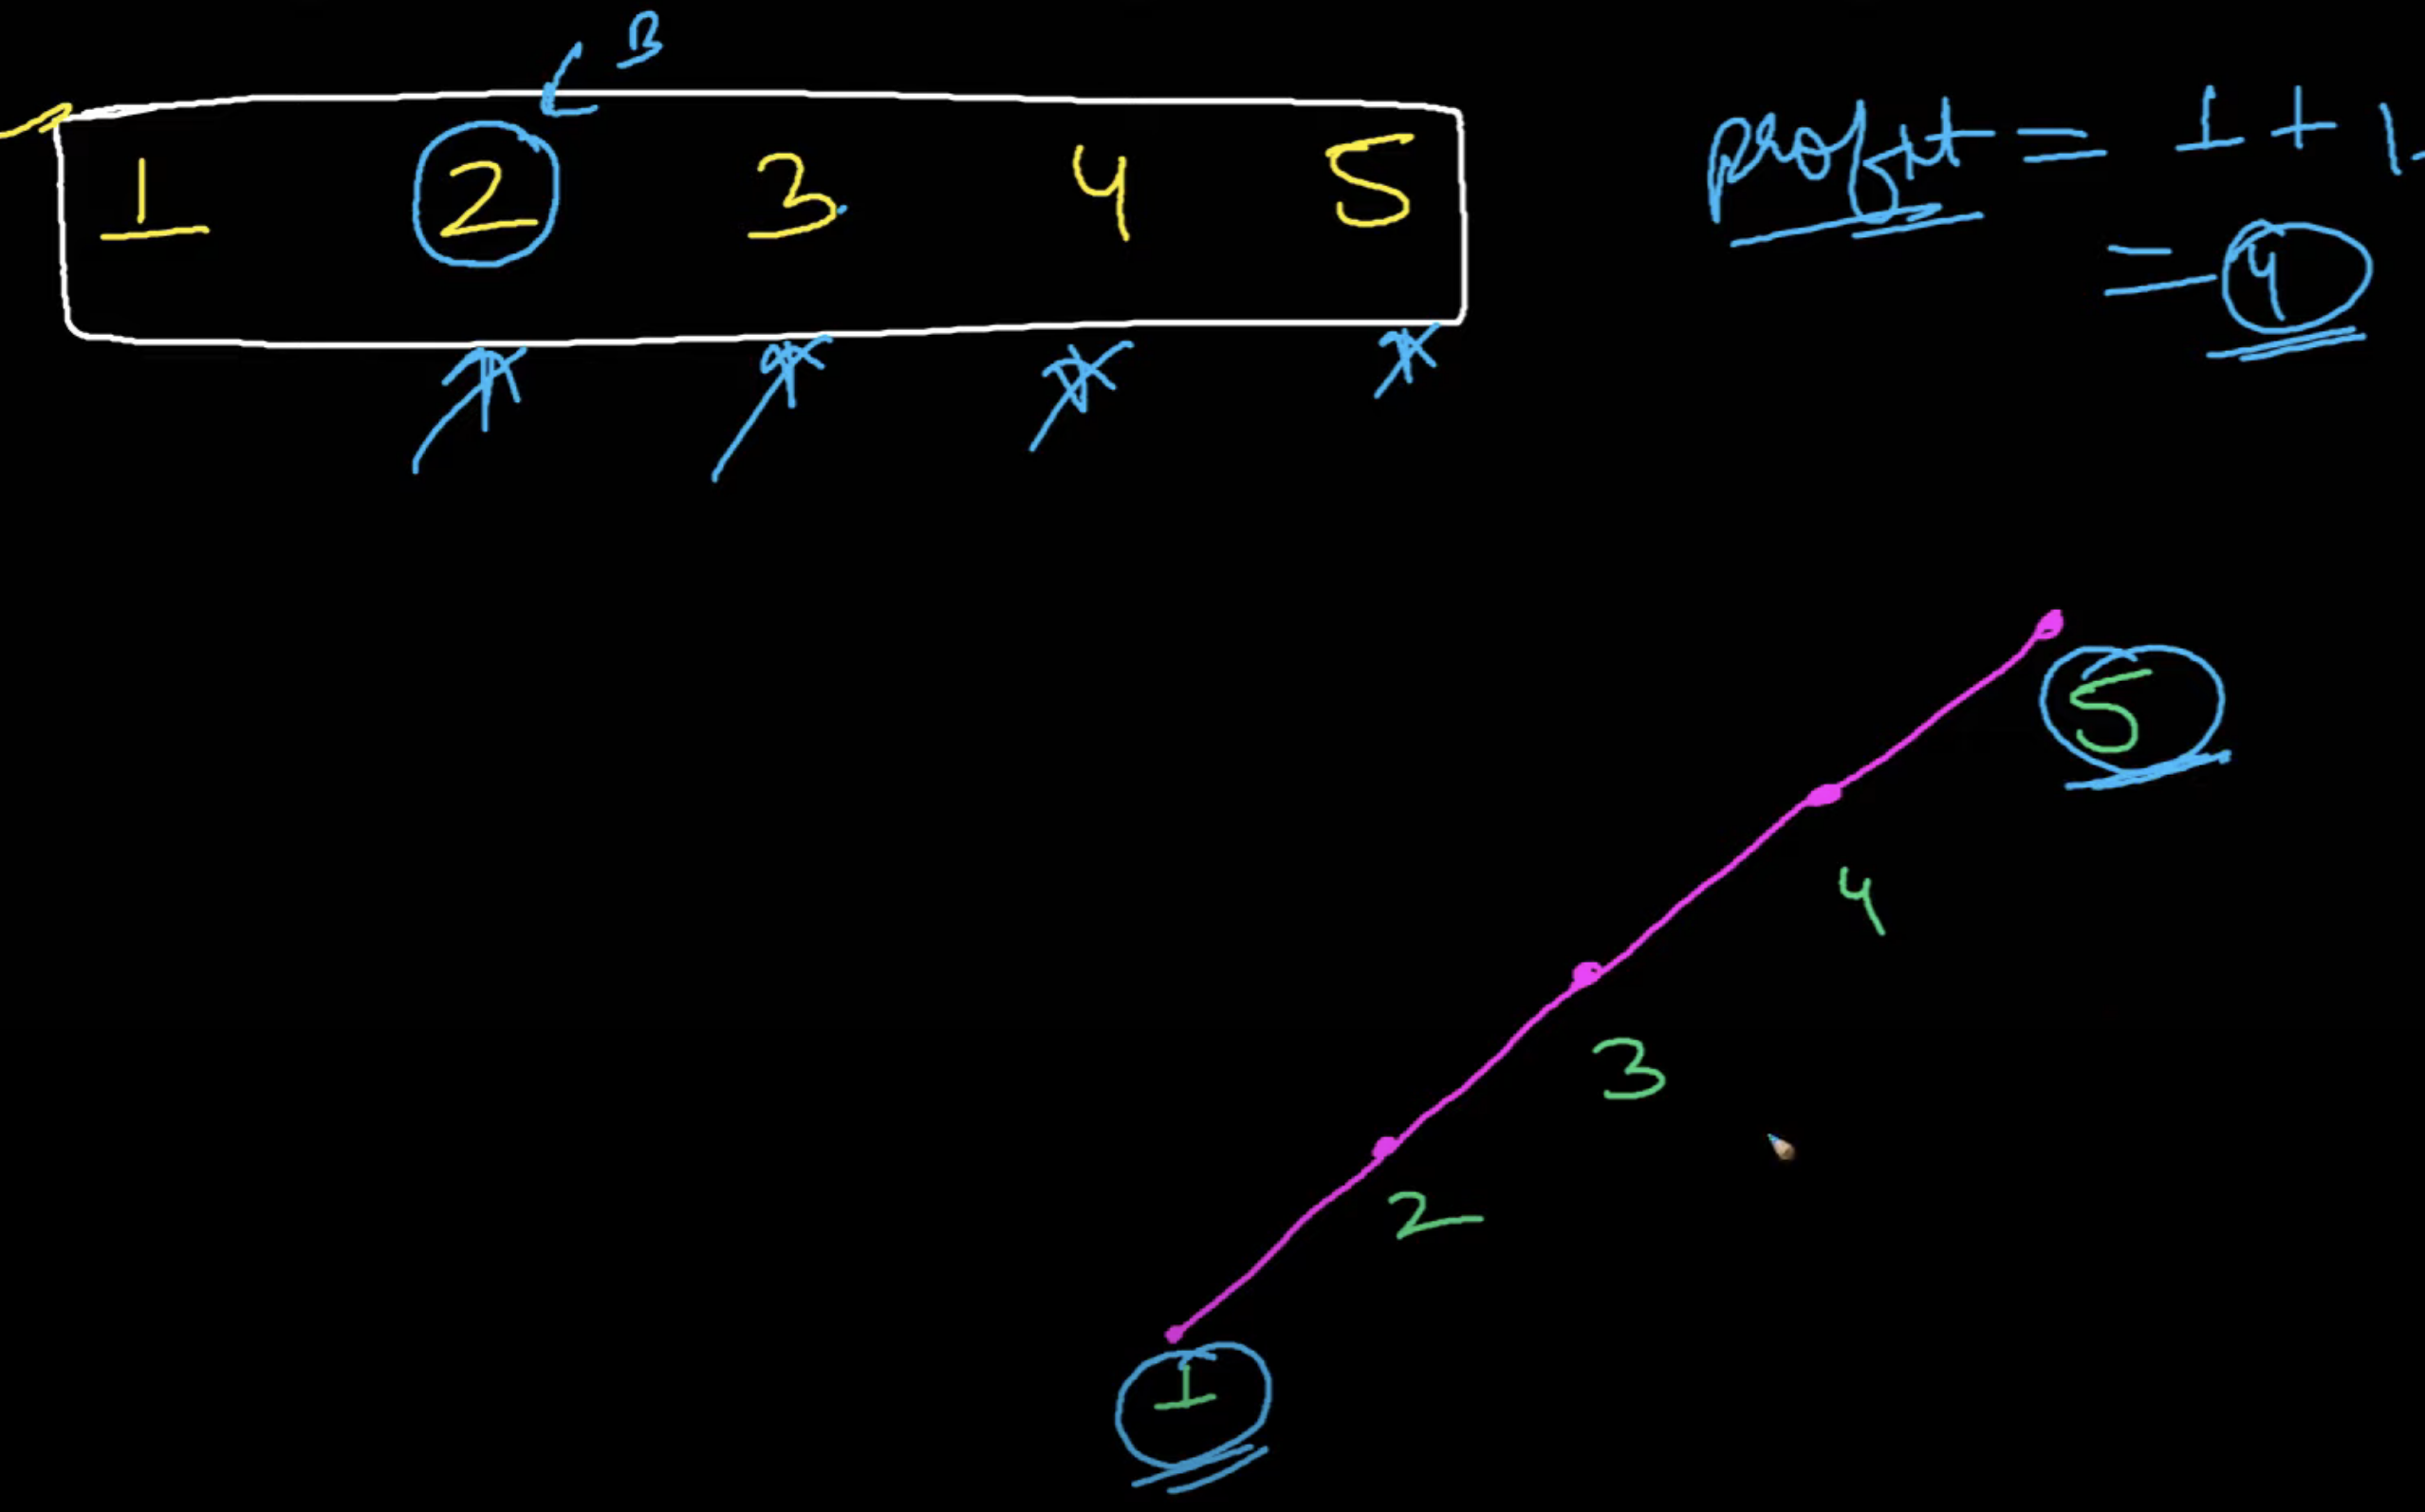 B
1 2 3 4 5
profit = 1 + 1
= 4
5
4
3
2
1